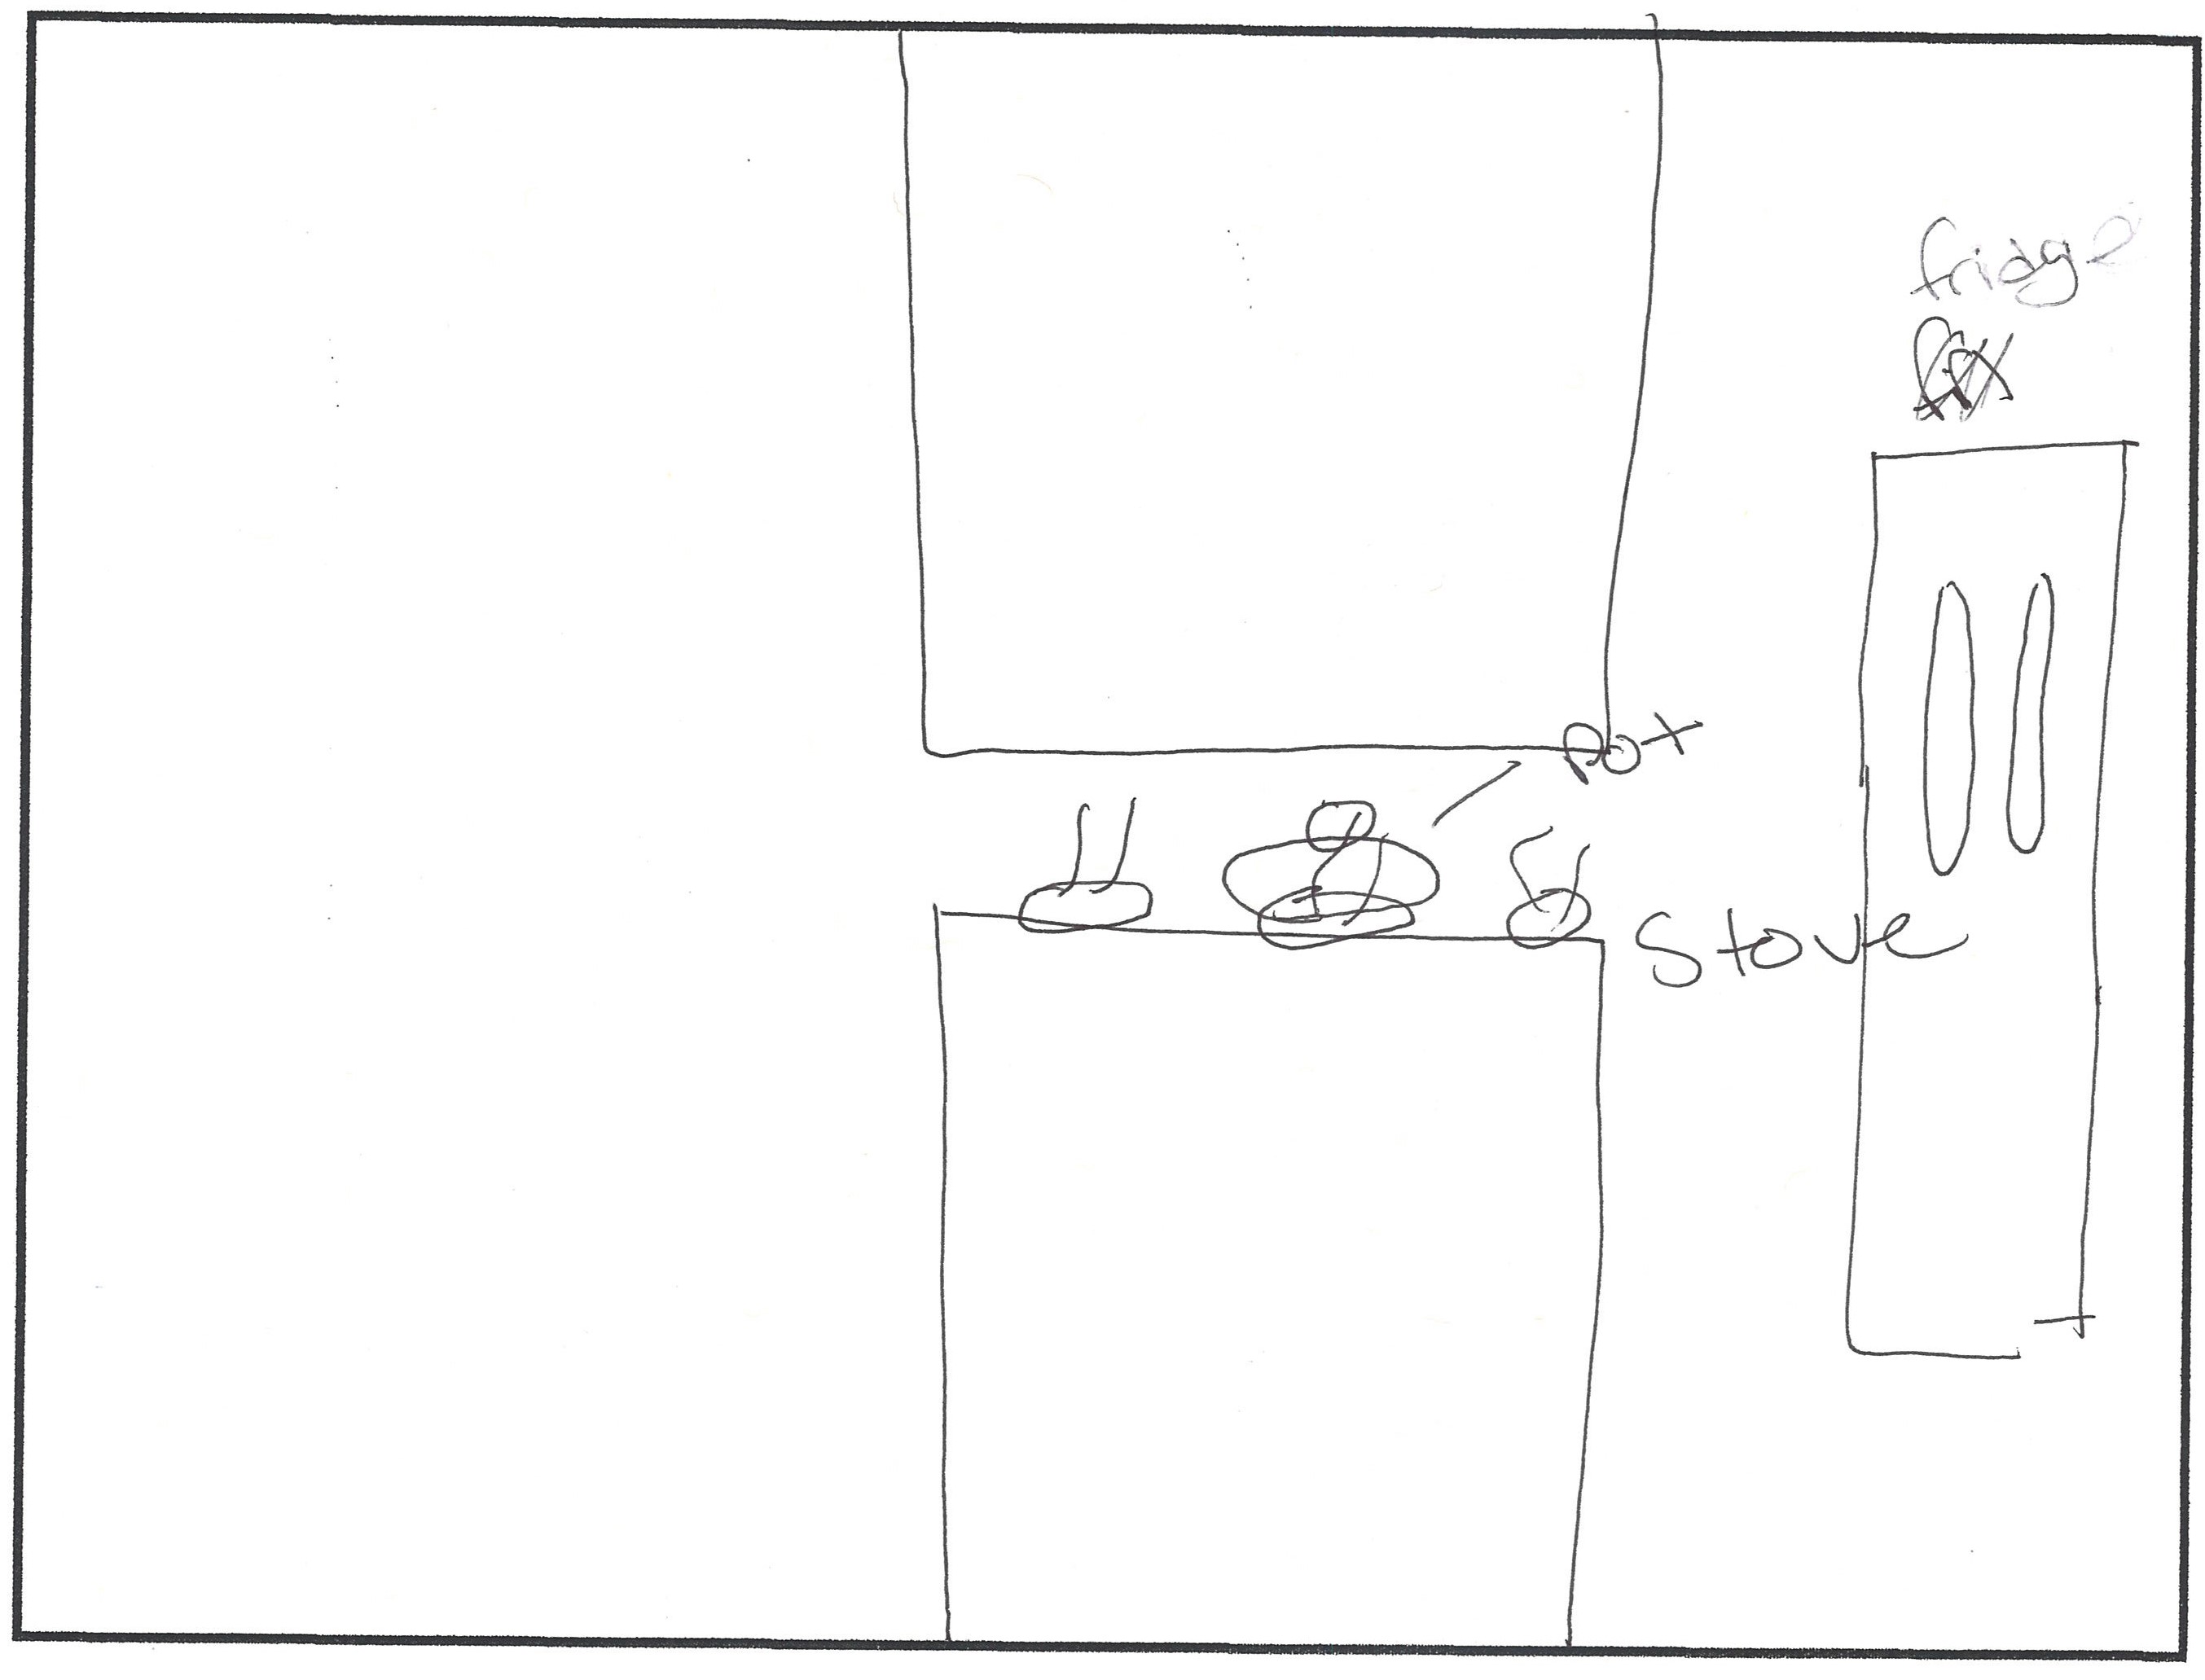 fridge
pot
stove